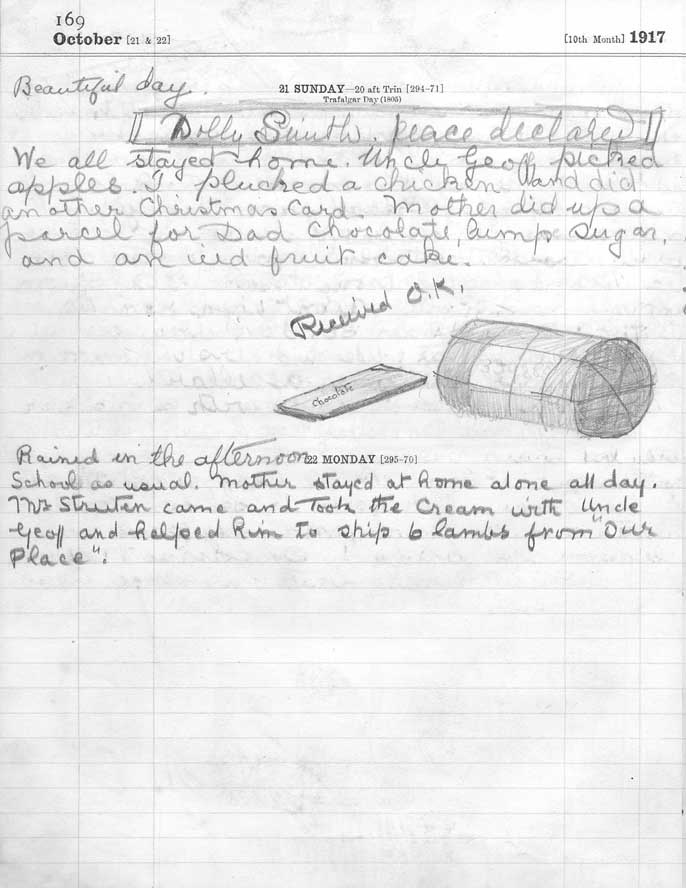 169
October [21 & 22]
[10th Month] 1917
Beautiful day.
21 SUNDAY—20 aft Trin [294-71]
Trafalgar Day (1805)
[[ Dolly Smith. peace declared ]]
We all stayed home. Uncle Geoff picked
apples. I plucked a chicken and did
another Christmas Card. Mother did up a
parcel for Dad Chocolate, lump sugar,
and an iced fruit cake.
Received O.K.
Chocolate
Rained in the afternoon
22 MONDAY [295-70]
School as usual. Mother stayed at home alone all day.
Mr Struten came and Took the Cream with Uncle
Geoff and helped him to ship 6 lambs from "Our
Place".